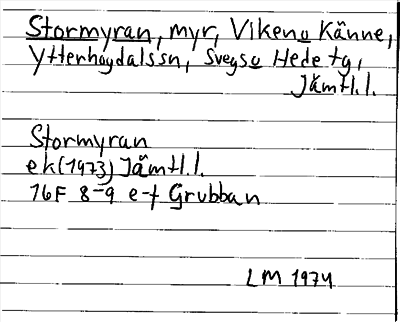 Stormyran, myr, Viken o Känne,
Ytterhogdals sn, Svegs o Hede tg,
Jämtl. l.
Stormyran
ek (1973) Jämtl. l.
16F 8-9 e-f Grubban
LM 1974